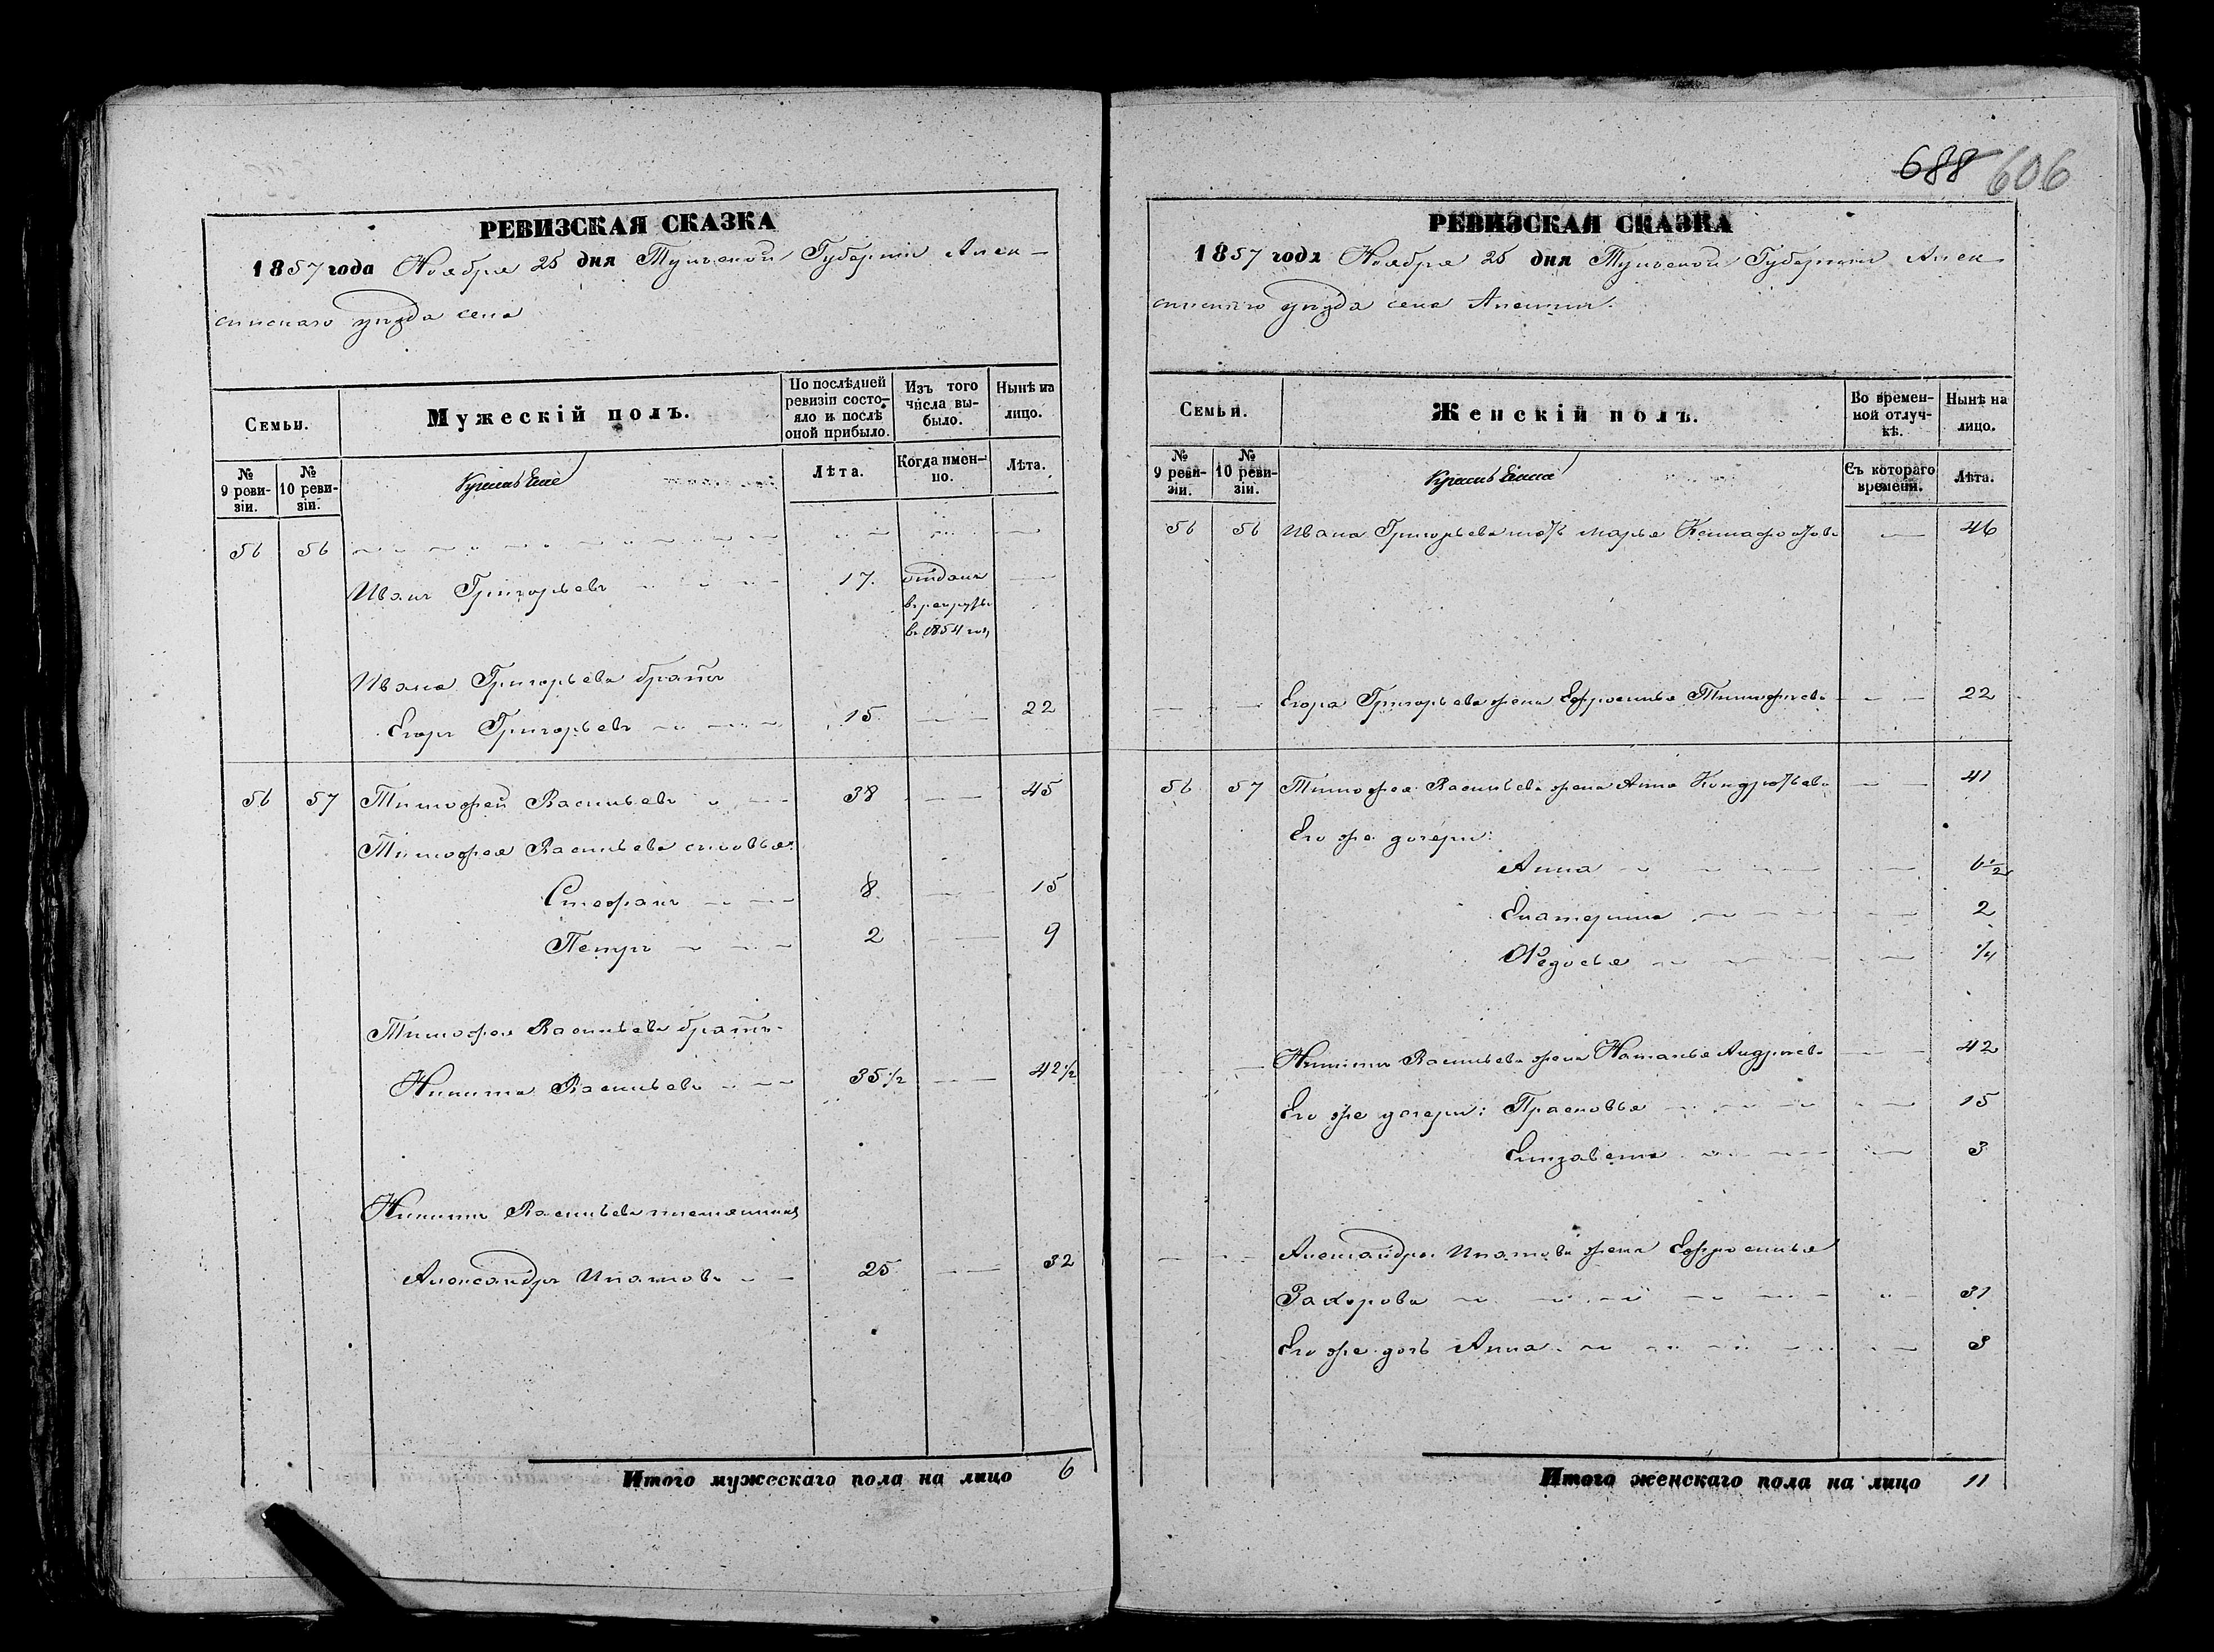 688 606
РЕВИЗСКАЯ СКАЗКА
1857 года Ноября 25 дня Тульской Губерніи Алек-
синскаго уѣзда села
Семьи.
Мужескій полъ.
По послѣдней ревизіи состо-яло и послѣ оной прибыло.
Изъ того числа вы-было.
Нынѣ на лицо.
№ 9 реви-зіи.
№ 10 реви-зіи.
Лѣта.
Когда имен-но.
Лѣта.
56 56
Иванъ Григорьевъ 17. отданъ
в рекруты
в 1854 год
Ивана Григорьева братъ
Егоръ Григорьевъ 15 22
56 57 Тимофей Васильевъ 38 45
Тимофея Васильева сыновья:
Стефанъ 8 15
Петръ 2 9
Тимофея Васильева братъ
Никита Васильевъ 35½ 42½
Никиты Васильева племянникъ
Александръ Ипатовъ 25 32
Итого мужескаго пола на лицо 6
РЕВИЗСКАЯ СКАЗКА
1857 года Ноября 25 дня Тульской Губерніи Алек-
синскаго уѣзда села
Семьи.
Женскій полъ.
Во времен-ной отлуч-кѣ.
Нынѣ на лицо.
№ 9 реви-зіи.
№ 10 реви-зіи.
Съ котораго времени.
Лѣта.
56 56 Ивана Григорьева мать Марья 46
Егора Григорьева жена Ефросинья Тимофѣева 22
56 57 Тимофея Васильева жена Анна Кондратьева 41
Его же дочери:
Анна 6½
Екатерина 2
Федосья ¼
Никиты Васильева жена Наталья Андреева 42
Его же дочери: Прасковья 15
Елизавета 3
Александра Ипатова жена Ефросинья
Захарова 31
Его же дочь Анна 3
Итого женскаго пола на лицо 11